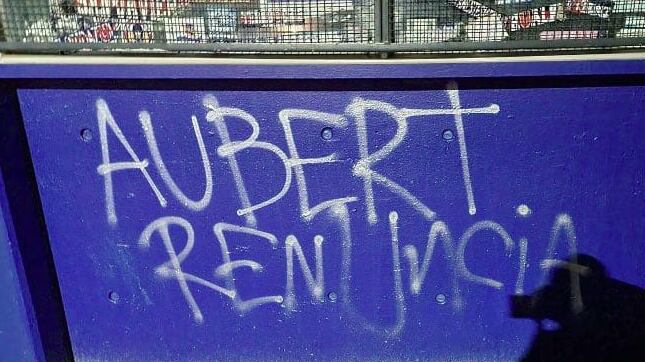 AUBERT
RENUnCiA